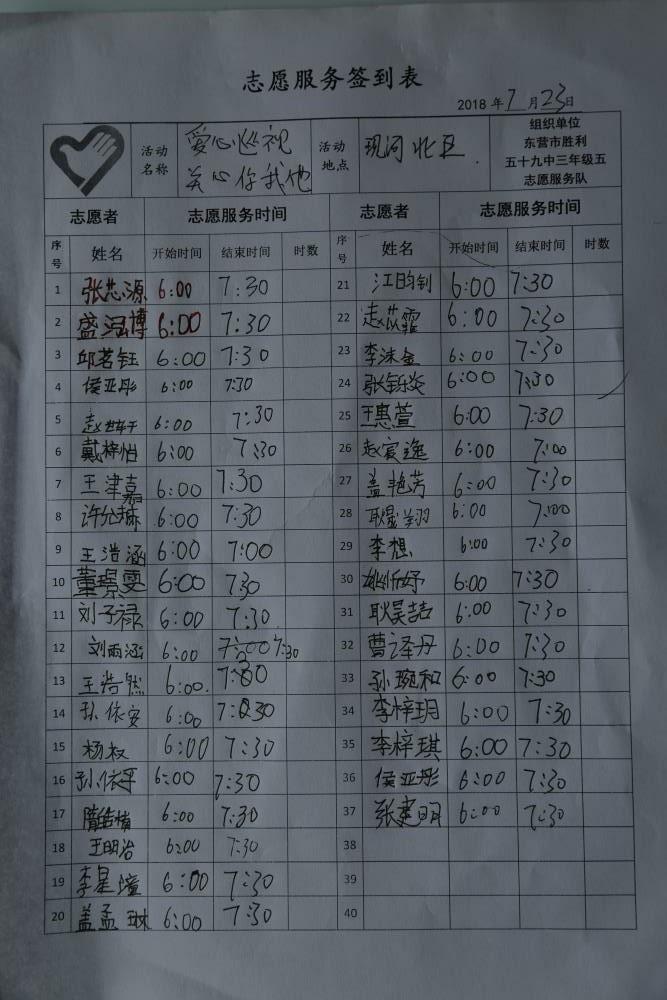 志愿服务签到表
2018 年 7 月 23 日
活动名称 爱心巡视 关心你我他 活动地点 现河北区 组织单位 东营市胜利五十九中三年级五志愿服务队
志愿者 志愿服务时间 志愿者 志愿服务时间
序号 姓名 开始时间 结束时间 时数 序号 姓名 开始时间 结束时间 时数
1 张芯源 6:00 7:30 21 江昀钊 6:00 7:30
2 盛泓博 6:00 7:30 22 6:00 7:30
3 邱茗钰 6:00 7:30 23 李沫金 6:00 7:30
4 侯亚彤 6:00 7:30 24 张钰炎 6:00 7:30
5 6:00 7:30 25 王惠萱 6:00 7:30
6 戴梓怡 6:00 7:30 26 赵宸逸 6:00 7:00
7 王津嘉 6:00 7:30 27 盖艳芳 6:00 7:30
8 6:00 7:30 28 6:00 7:00
9 王浩涵 6:00 7:00 29 李想 6:00 7:30
10 董璟雯 6:00 7:30 30 姚昕妤 6:00 7:30
11 刘子禄 6:00 7:30 31 耿昊喆 6:00 7:30
12 刘雨涵 6:00 7:30 32 曹译丹 6:00 7:30
13 王浩然 6:00 7:30 33 孙琬和 6:00 7:30
14 孙依安 6:00 7:30 34 李梓玥 6:00 7:30
15 杨权 6:00 7:30 35 李梓琪 6:00 7:30
16 孙依平 6:00 7:30 36 侯亚彤 6:00 7:30
17 6:00 7:30 37 张建明 6:00 7:30
18 王明冶 6:00 7:30 38
19 6:00 7:30 39
20 盖孟琳 6:00 7:30 40